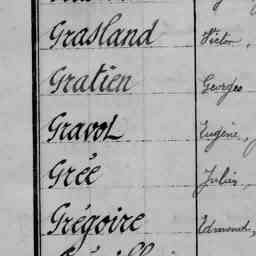 Grasland Victor,
Gratien Georges
Gravot Eugène,
Grée Julien,
Grégoire Edmond,